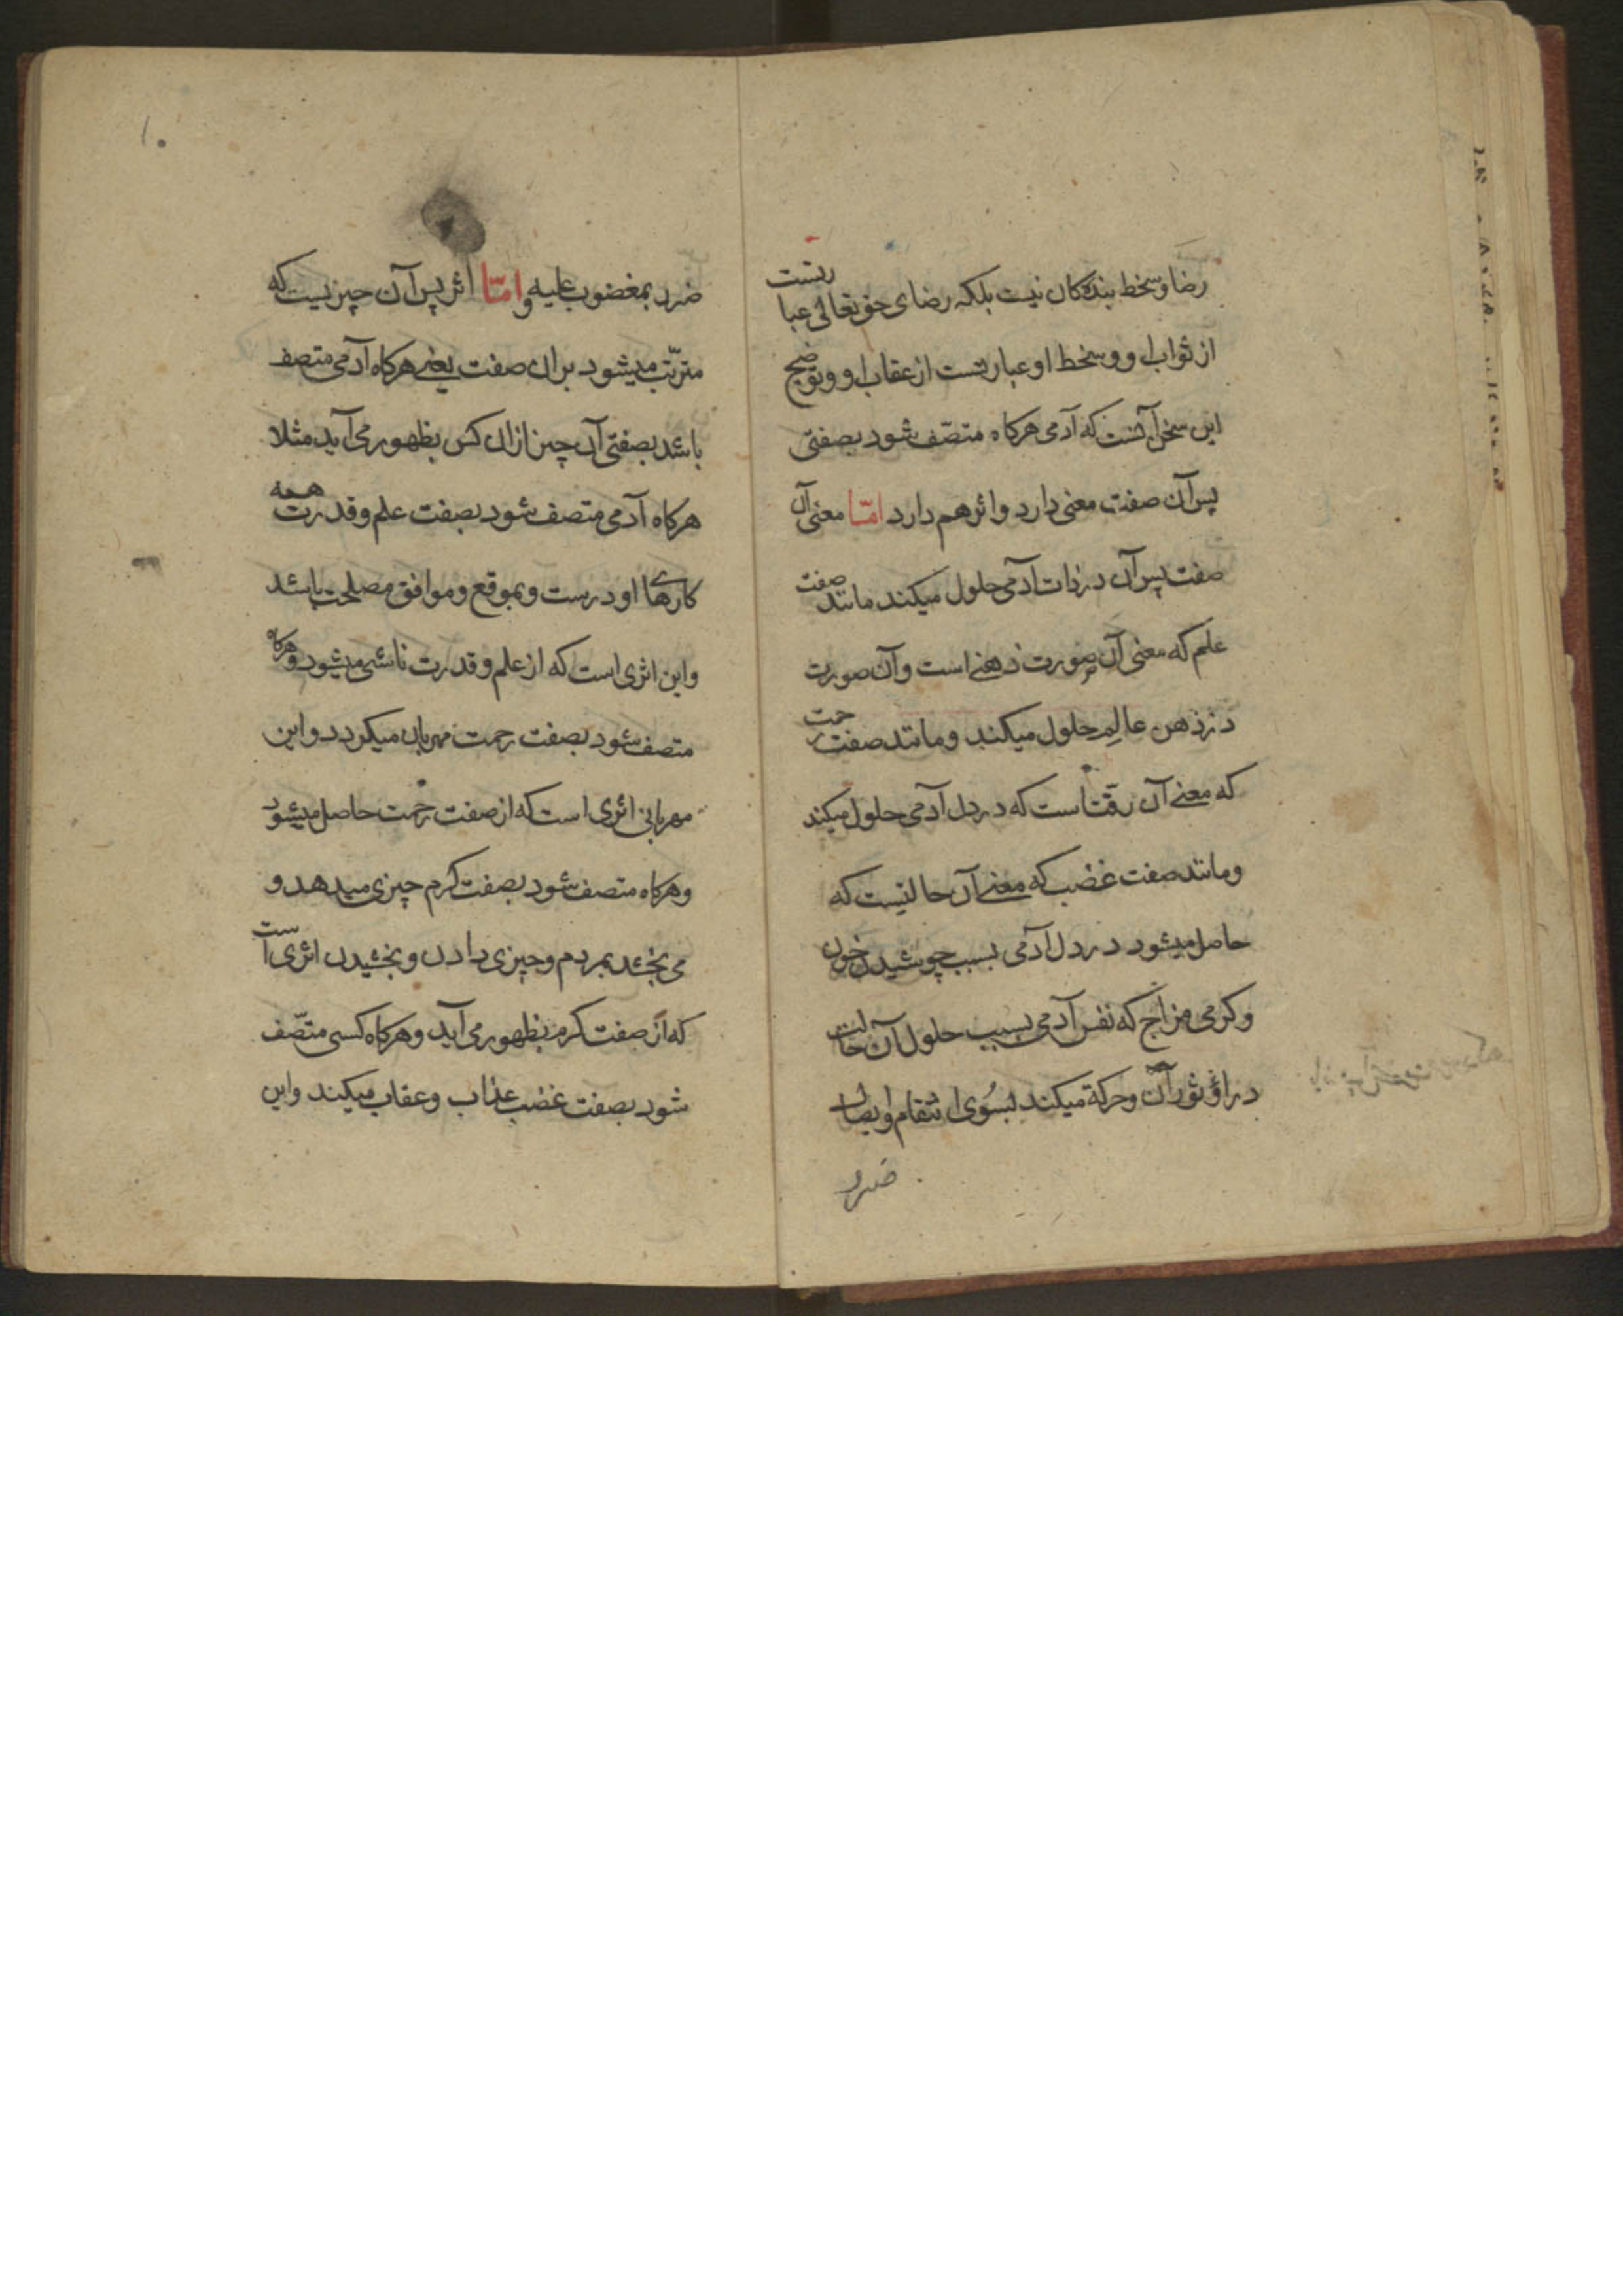 رضا و سخط بندکان نیست بلکه رضای حق تعالی عبارتست
از ثواب او و سخط او عبارتست از عقاب او و توضیح
این سخن آنست که آدمی هرکاه متصّف شود بصفتی
پس آن صفت معنی دارد و اثر هم دارد امّا معنی آن
صفت پس آن در ذات آدمی حلول میکند مانند صفت
علم که معنی آن صورت ذهنی است و آن صورت
در ذهن عالِم حلول میکند و مانند صفت رحمت
که معنی آن رقّت است که در دل آدمی حلول میکند
و مانند صفت غضب که معنی آن حالتیست که
حاصل میشود در دل آدمی بسبب جوشیدن خون
و کرمی مزاج که نفس آدمی بسبب حلول آن حالت
در او ثوران و حرکة میکند بسُوی انتقام و ایصال
ضرر
۱۰
ضرر بمغضوب علیه و امّا اثر پس آن چیزیست که
مترتّب میشود بران صفت یعنی هرکاه آدمی متصف
باشد بصفتی آن چیز ازان کس بظهور می آید مثلا
هرکاه آدمی متصف شود بصفت علم و قدرت همه
کارهای او درست و بموقع و موافق مصلحت باشد
و این اثری است که از علم و قدرت ناشی میشود و هرکاه
متصف شود بصفت رحمت مهربان میکردد و این
مهربانی اثری است که از صفت رحمت حاصل میشود
و هرکاه متصف شود بصفت کرم چیزی میدهد و
می بخشد بمردم و چیزی دادن و بخشیدن اثری است
که از صفت کرم بظهور می آید و هرکاه کسی متصّف
شود بصفت غضب عذاب و عقاب میکند و این